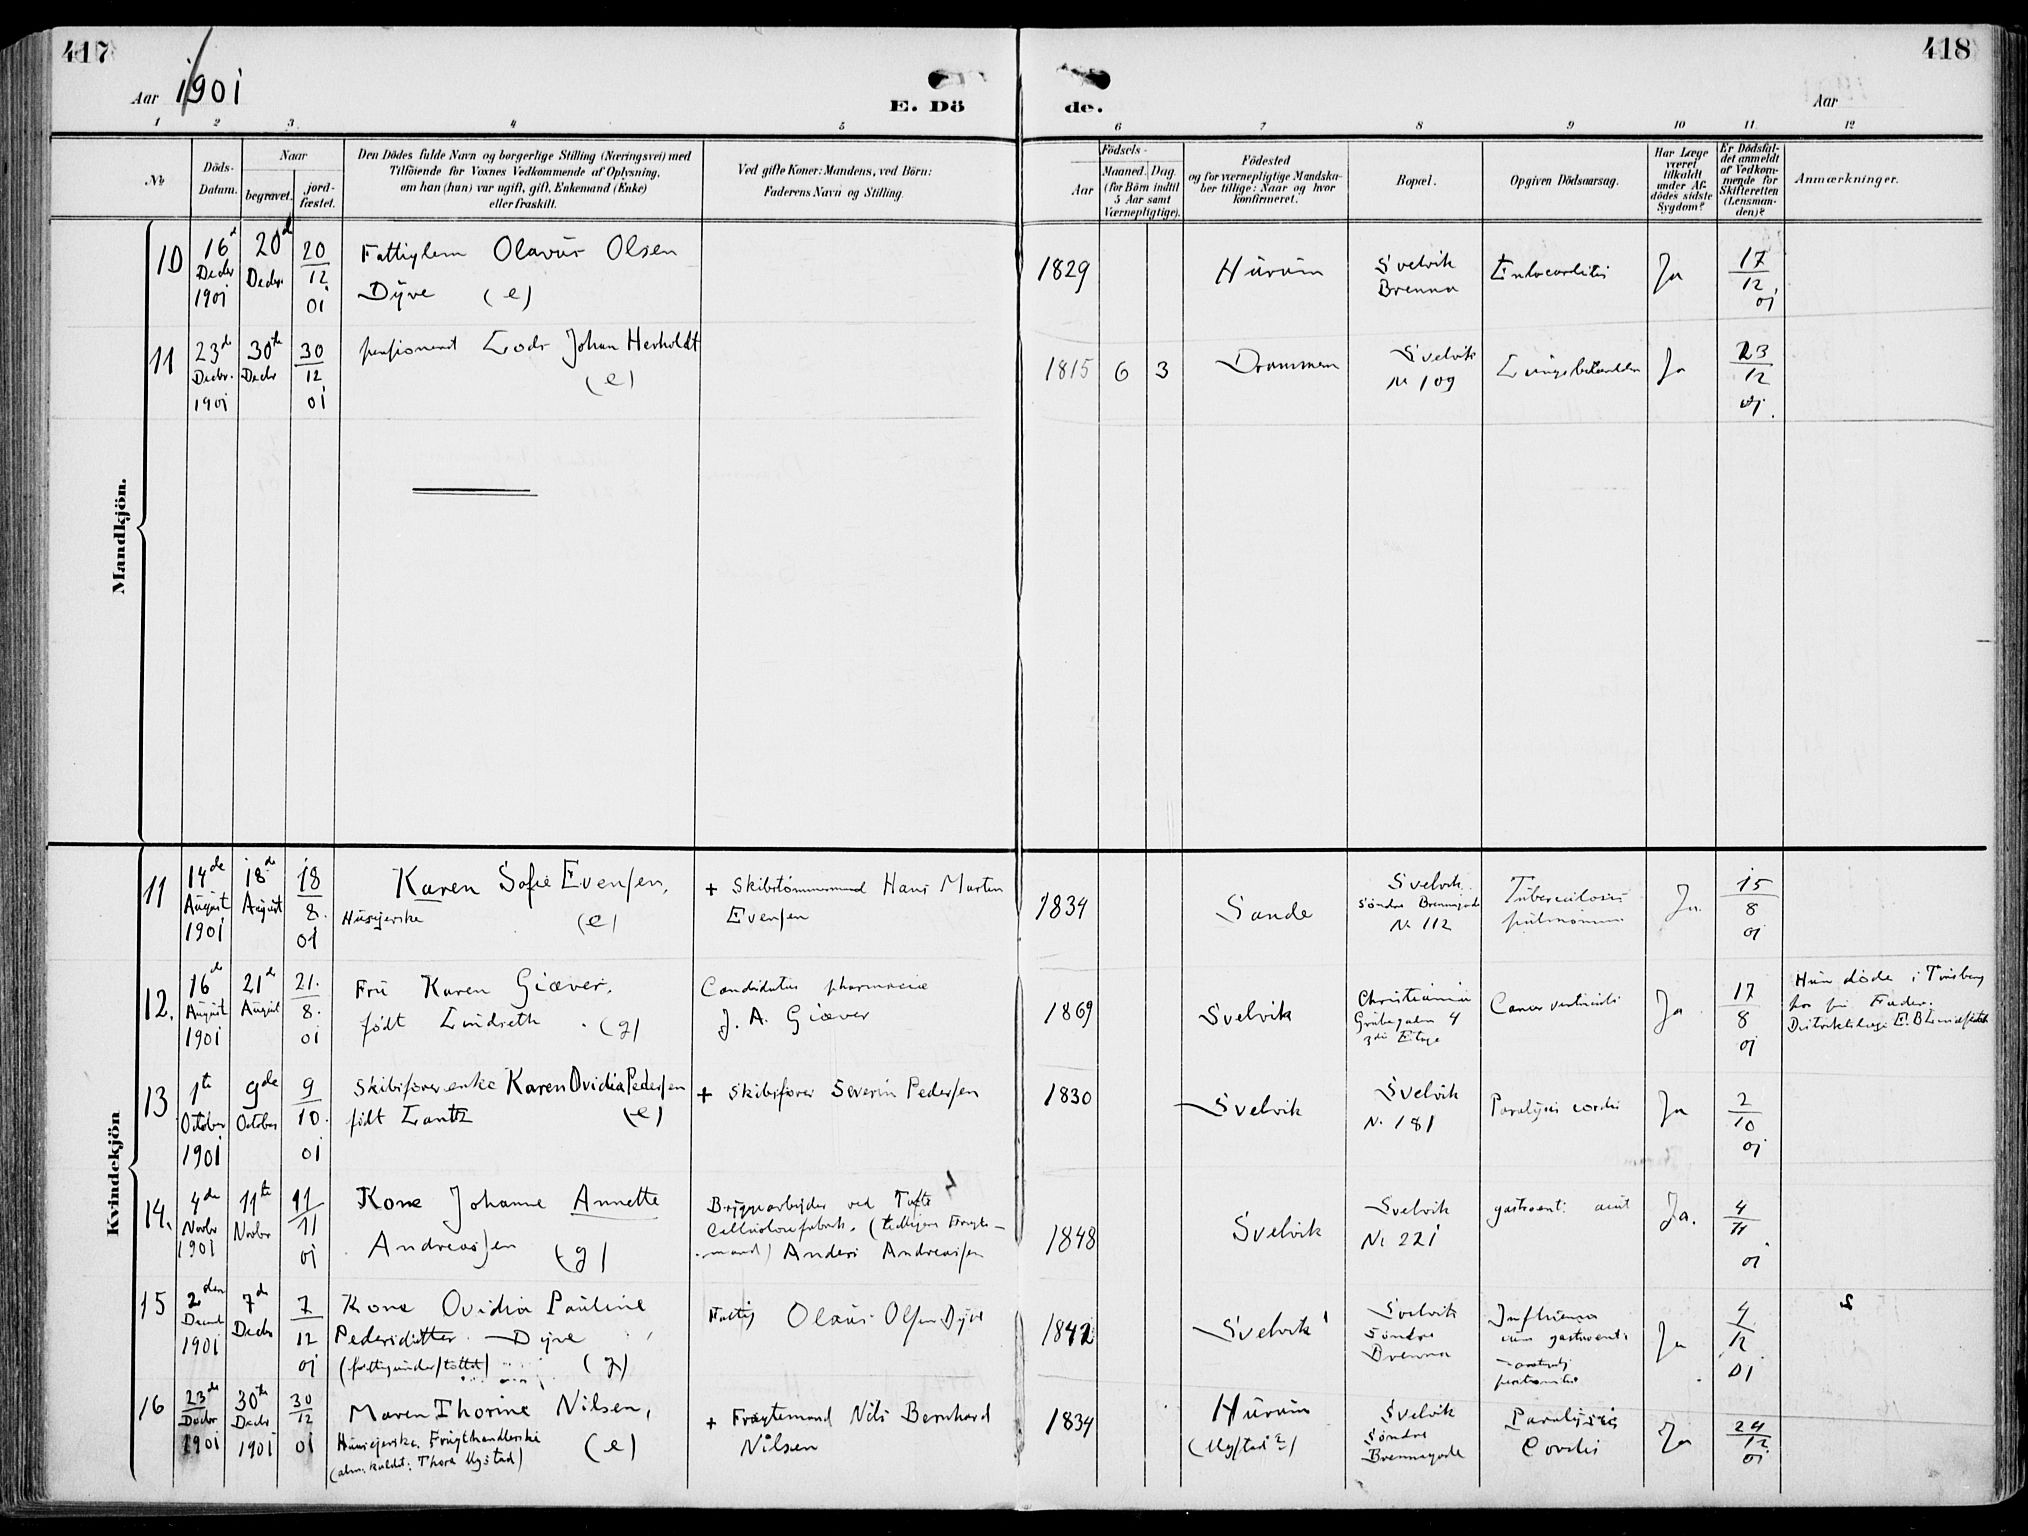 417
418
Aar 1901
E. Döde.
Aar
1 2 3. 4 5 6 7 8 9 10 11. 12
№
Döds-Datum.
Naar
begravet.
jord-fæstet.
Den Dödes fulde Navn og borgerlige Stilling (Næringsvei) med
Tilföiende for Voxnes Vedkommende af Oplysning,
om han (hun) var ugift, gift, Enkemand (Enke)
eller fraskilt.
Ved gifte Koner: Mandens, ved Börn:
Faderens Navn og Stilling.
Födsels-
Aar
Maaned. Dag.
(for Börn indtil
5 Aar samt
Værnepligtige).
Födested
og for værnepligtige Mandska-
ber tillige: Naar og hvor
konfirmeret.
Bopæl.
Opgiven Dödsaarsag.
Har Læge
været
tilkaldt
under Af-
dödes sidste
Sygdom?
Er Dödsfal-
det anmeldt
af Vedkom-
mende for
Skifteretten
(Lensman-
den)?
Anmærkninger.
Mandkjön.
10
16d Decbr 1901
20d Decbr.
20/12 01
Fattiglem Olavus Olsen
Dyve (e)
1829
Hurum
Svelvik
Brenna
Endocarditis
Ja
17/12 01
11
23de Decbr. 1901
30te Decbr
30/12 01
pensioneret Lods Johan Herholdt
(e)
1815 6 3
Drammen
Svelvik
№ 109
Ja
23/12 01.
Kvindekjön
11
14de August 1901
18de August
18/8. 01
Karen Sofie Evensen,
Huseierske (e)
+ Skibstømmermand Hans Martin
Evensen
1834
Sande
Svelvik
Søndre Brennagade
№ 112
Tuberculosis
pulmonum
Ja.
15/8 01
12.
16de August 1901
21de August
21./8. 01
Fru Karen Giæver,
født Lindseth. (g)
Candidatus pharmaciæ
J. A. Giæver
1869
Svelvik
Christiania
Grubegaden 4
3die Etage
Cancer ventriculi
Ja
17/8 01
Hun døde i Tønsberg
hos sin Fader.
13
1te October 1901
9de October
9/10. 01
Skibsførerenke Karen Ovidia Pedersen
født Lantz (e)
+ Skibsfører Severin Pedersen
1830
Svelvik
Svelvik
№ 181
Paralysis cordis
Ja
2/10 01
14.
4de Novbr 1901
11te Novbr
11/11 01
Kone Johanne Annette
Andreassen (g)
Bryggearbeider ved Tofte
Cellulosefabrik. (tidligere Fragte-
mand) Anders Andreassen
1848
Svelvik
Svelvik
№ 221
gastroent: acut
Ja.
4/11 01
15
2den Decmb 1901
7de Decbr
7/12 01
Kone Ovidia Pauline
Pedersdatter Dyve
(fattigunderstøttet) (g)
Fattig Olaus Olsen Dyve
1842
Svelvik
Svelvik
Søndre
Brenna
Influenza
cum gastroent:
peritonitis
Ja
4/12 01
16
23de Decbr 1901
30te Decbr 1901
30/12 01
Maren Thorine Nilsen,
Huseierske, Frugthandlerske (e)
(alm. kaldet: Thora Mystad)
+ Fragtemand Nils Bernhard
Nilsen
1834
Hurum
Svelvik
Søndre
Brennagade
Paralysis
Cordis
Ja
24/12. 01